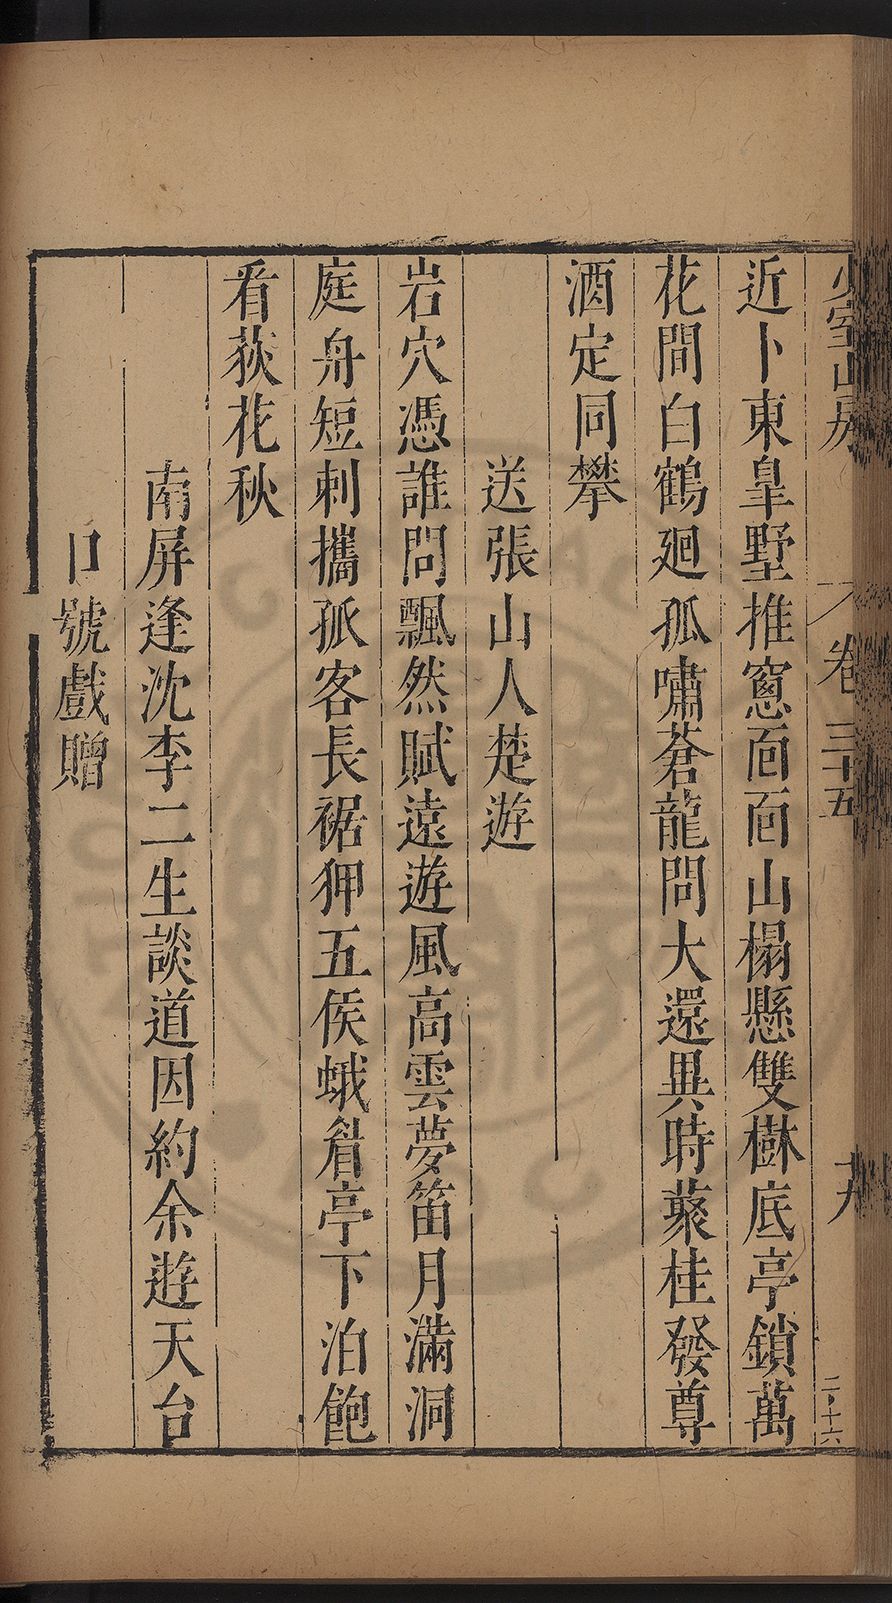 少室山房 卷三十五 十六
二·十六
近卜東臯墅推窻面面山榻懸雙樹底亭鎖萬
花間白鶴廻孤嘯蒼龍問大還異時藂桂發尊
酒定同攀
送張山人楚遊
岩穴憑誰問飄然賦遠遊風高雲夢笛月滿洞
庭舟短刺攜孤客長裾狎五侯蛾眉亭下泊飽
看荻花秋
南屏逢沈李二生談道因約余遊天台
口號戲贈